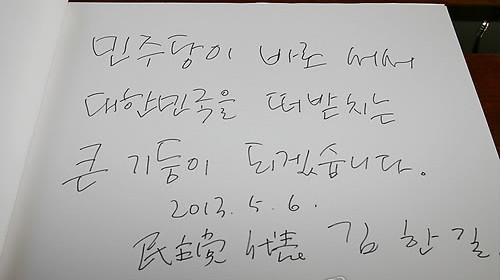 민주당이 바로 서서
대한민국을 떠받치는
큰 기둥이 되겠습니다.
2013. 5. 6.
民主党 代表 김 한 길